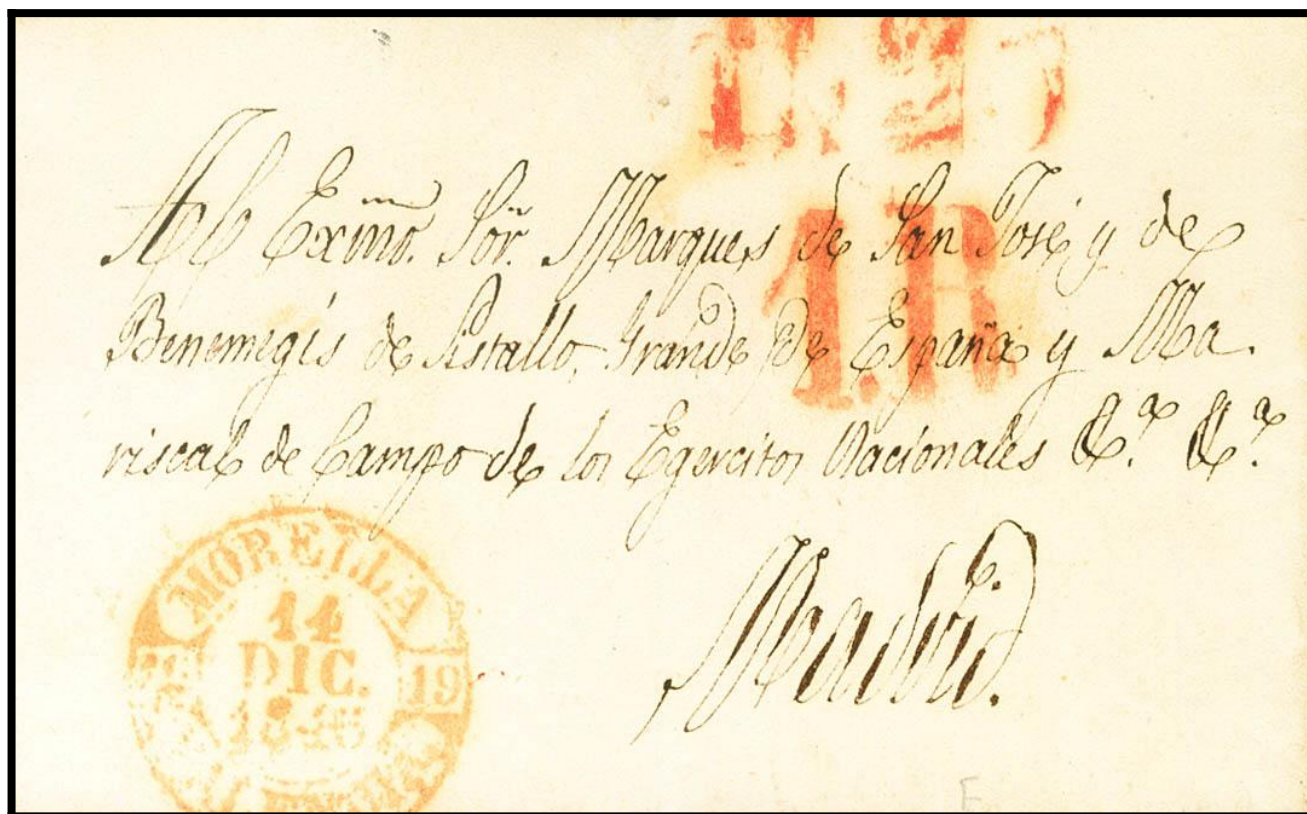 1.R
Al Exmo. Sor. Marques de San José y de
Benemegis de Sistallo. Grande de España y Ma-
riscal de Campo de los Egercitos Nacionales &.ª &.ª
Madrid.
MORELLA
14
DIC.
19